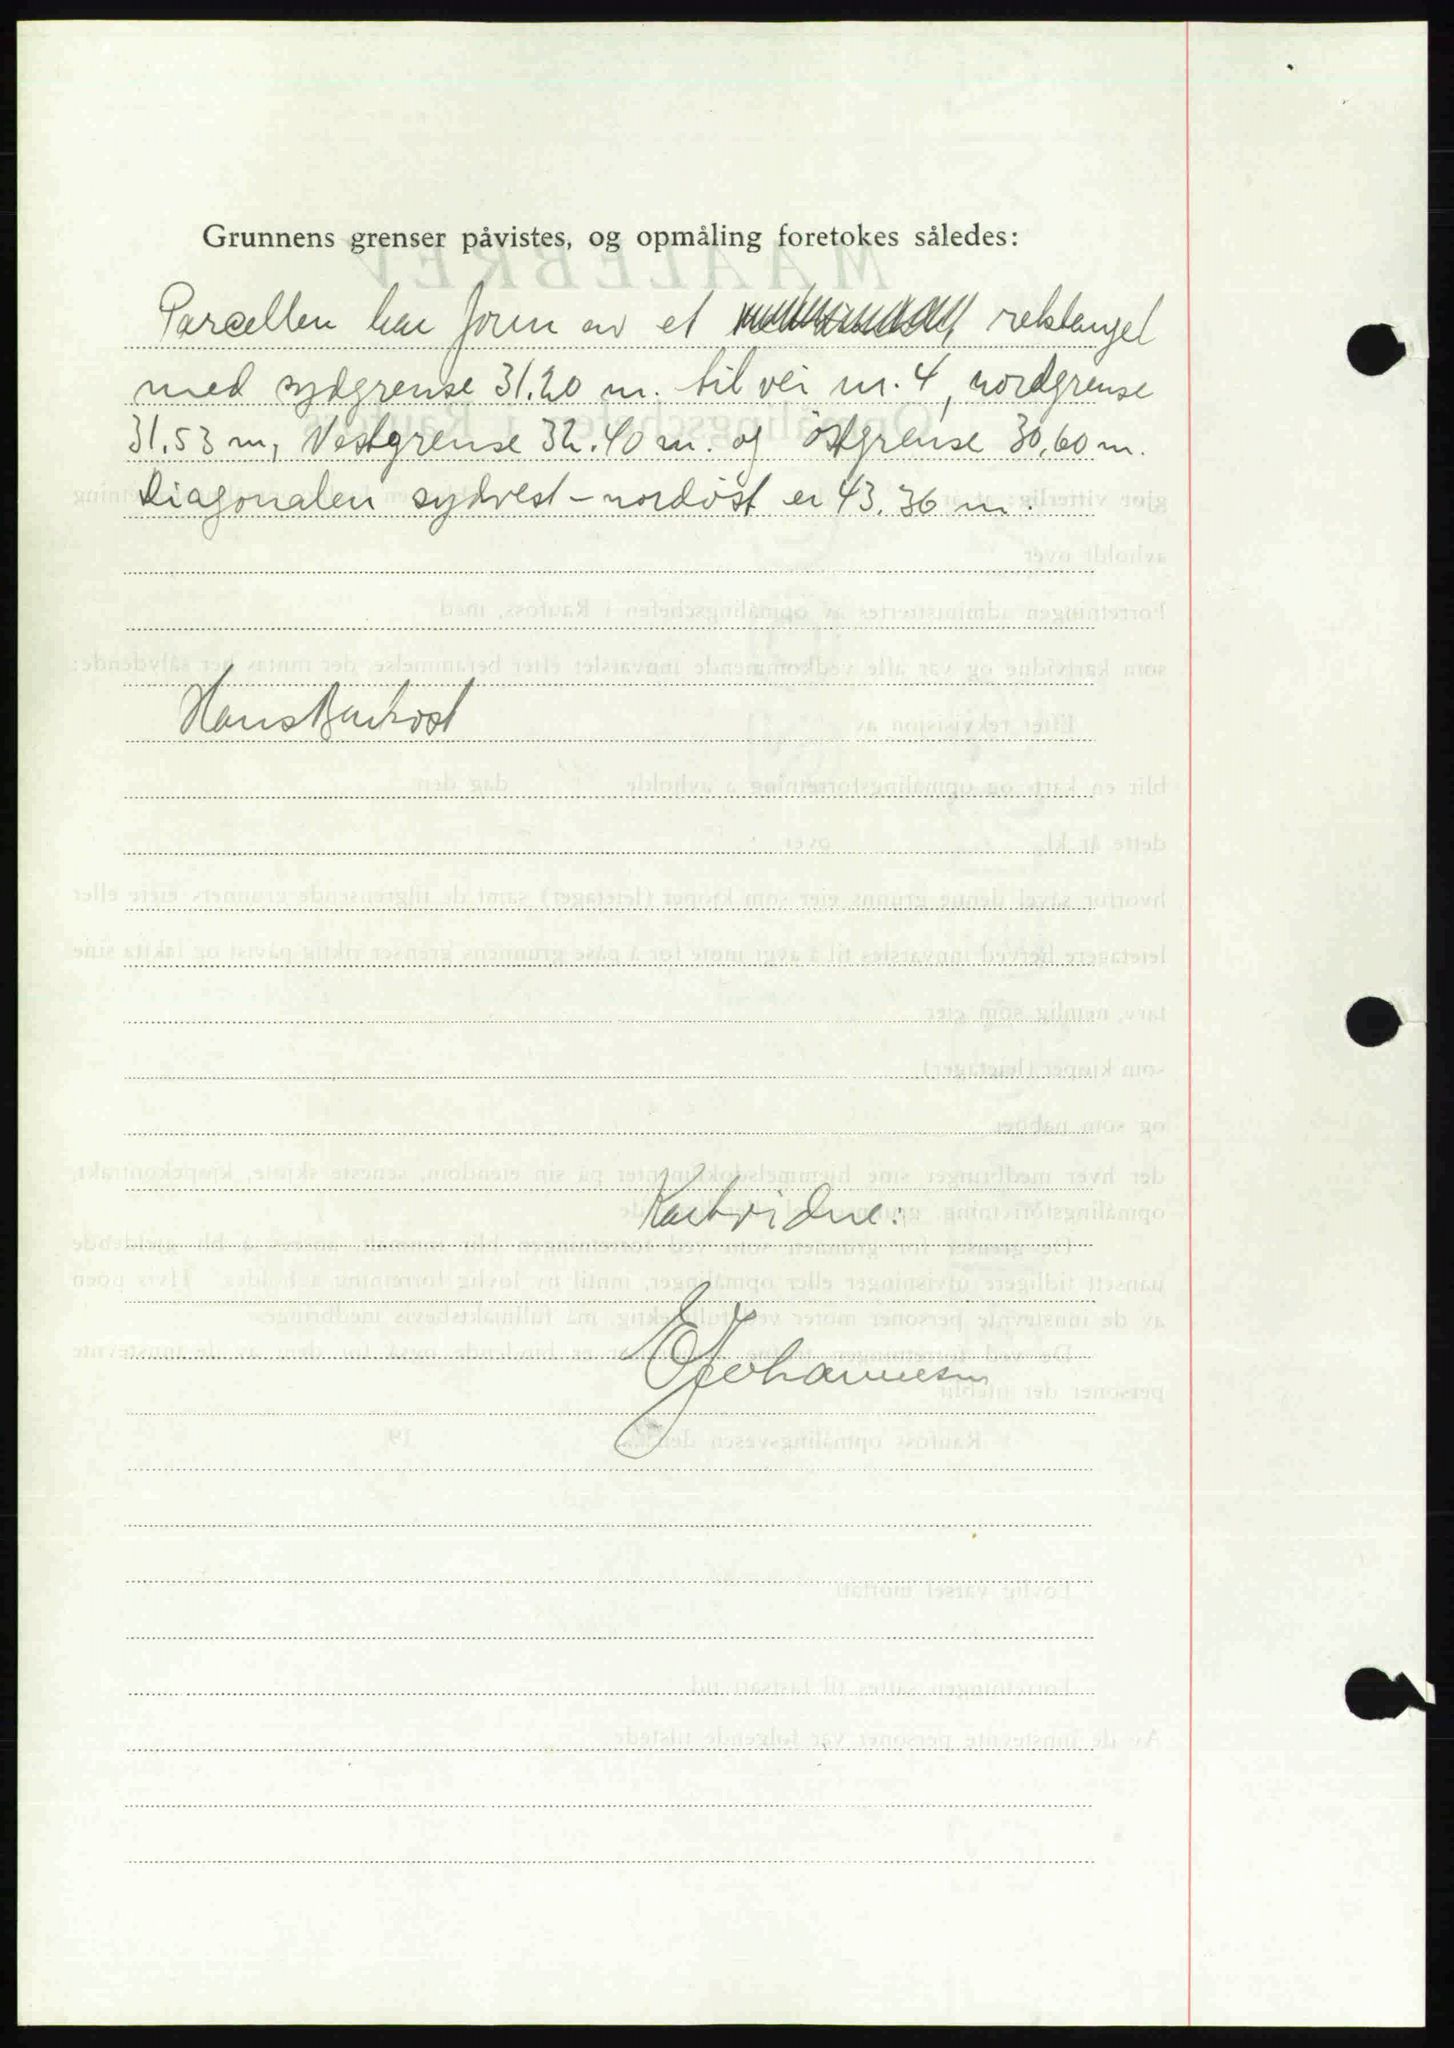 Grunnens grenser påvistes, og opmåling foretokes således:
Parcellen har form av et rektangel
med sydgrense 31.20 m. til vei nr. 4, nordgrense
31.53 m, Vestgrense 32.40 m. og östgrense 30.60 m.
Diagonalen sydvest - nordöst er 43.36 m.
Hans
Kartvidne:
E Johannesen